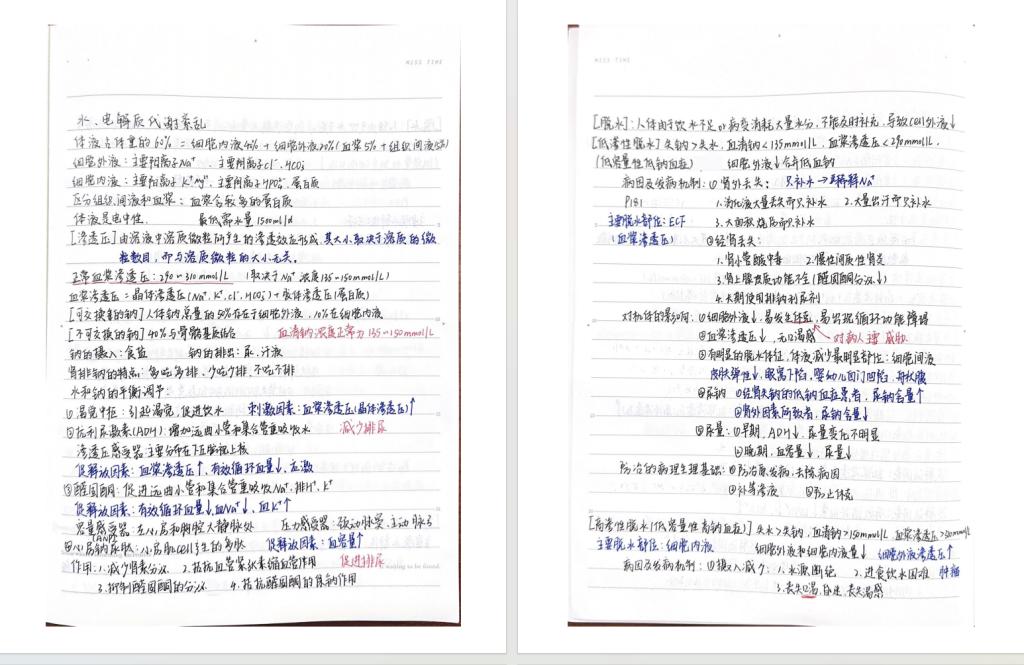 MISS TIME
水、电解质代谢紊乱
体液占体重的60% = 细胞内液40% + 细胞外液20%(血浆5% + 组织间液15%)
细胞外液：主要阳离子Na⁺、主要阴离子Cl⁻、HCO₃⁻
细胞内液：主要阳离子K⁺Mg²⁺、主要阴离子HPO₄²⁻、蛋白质
区分组织间液和血浆：血浆含较多的蛋白质
体液是电中性。 最低需水量1500ml/d
[渗透压]由溶液中溶质微粒所产生的渗透效应形成，其大小取决于溶质的微
粒数目，而与溶质微粒的大小无关。
正常血浆渗透压：290~310mmol/L (取决于Na⁺浓度135~150mmol/L)
血浆渗透压=晶体渗透压(Na⁺、K⁺、Cl⁻、HCO₃⁻)+胶体渗透压(蛋白质)
[可交换的钠]人体钠总量的50%存于细胞外液，10%在细胞内液
[不可交换的钠]40%与骨骼基质结合 血清钠浓度正常为135~150mmol/L
钠的摄入：食盐 钠的排出：尿、汗液
肾排钠的特点：多吃多排、少吃少排、不吃不排
水和钠的平衡调节：
①渴觉中枢：引起渴觉，促进饮水 刺激因素：血浆渗透压(晶体渗透压)↑
②抗利尿激素(ADH)：增加远曲小管和集合管重吸收水 减少排尿
渗透压感受器：主要分布在下丘脑视上核
促释放因素：血浆渗透压↑、有效循环血量↓、应激
③醛固酮：促进远曲小管和集合管重吸收Na⁺、排H⁺、K⁺
促释放因素：有效循环血量↓、血Na⁺↓、血K⁺↑
容量感受器：左心房和胸腔大静脉处 压力感受器：颈动脉窦、主动脉弓
(ANP)
④心房钠尿肽：心房肌cell产生的多肽 促释放因素：血容量↑
作用：1.减少肾素分泌 2.拮抗血管紧张素缩血管作用 促进排尿
waiting to be found.
3.抑制醛固酮的分泌 4.拮抗醛固酮的保钠作用
MISS TIME
[脱水]：人体由于饮水不足or病变消耗大量水分，不能及时补充，导致cell外液↓
[低渗性脱水]失钠>失水，血清钠<135mmol/L，血浆渗透压<290mmol/L，
(低容量性低钠血症) 细胞外液↓合并低血钠
病因及发病机制：①肾外丢失： 只补水→更稀释Na⁺
P181 1.消化液大量丢失而只补水 2.大量出汗而只补水
主要脱水部位：ECF 3.大面积烧伤而只补水
(血浆渗透压) ②经肾丢失：
1.肾小管酸中毒 2.慢性间质性肾炎
3.肾上腺皮质功能不全(醛固酮分泌↓)
4.长期使用排钠利尿剂
对机体的影响：①细胞外液↓，易发生休克，易出现循环功能障碍
②血浆渗透压↓，无口渴感 对病人威胁
③有明显的脱水体征，体液减少最明显部位：细胞间液
皮肤弹性↓，眼窝下陷，婴幼儿囟门凹陷，舟状腹
④尿钠 ①经肾失钠的低钠血症患者，尿钠含量↑
②肾外因素所致者，尿钠含量↓
⑤尿量：①早期，ADH↓，尿量变化不明显
②晚期，血容量↓，尿量↓
防治的病理生理基础：①防治原发病，去除病因
②补等渗液 ③防止休克
[高渗性脱水](低容量性高钠血症)]失水>失钠，血清钠>150mmol/L，血浆渗透压>310mmol/L
主要脱水部位：细胞内液 细胞外液和细胞内液量↓ 细胞外液渗透压↑
病因及发病机制：①摄入减少：1.水源断绝 2.进食饮水困难 肿瘤
3.丧失口渴，昏迷，丧失渴感